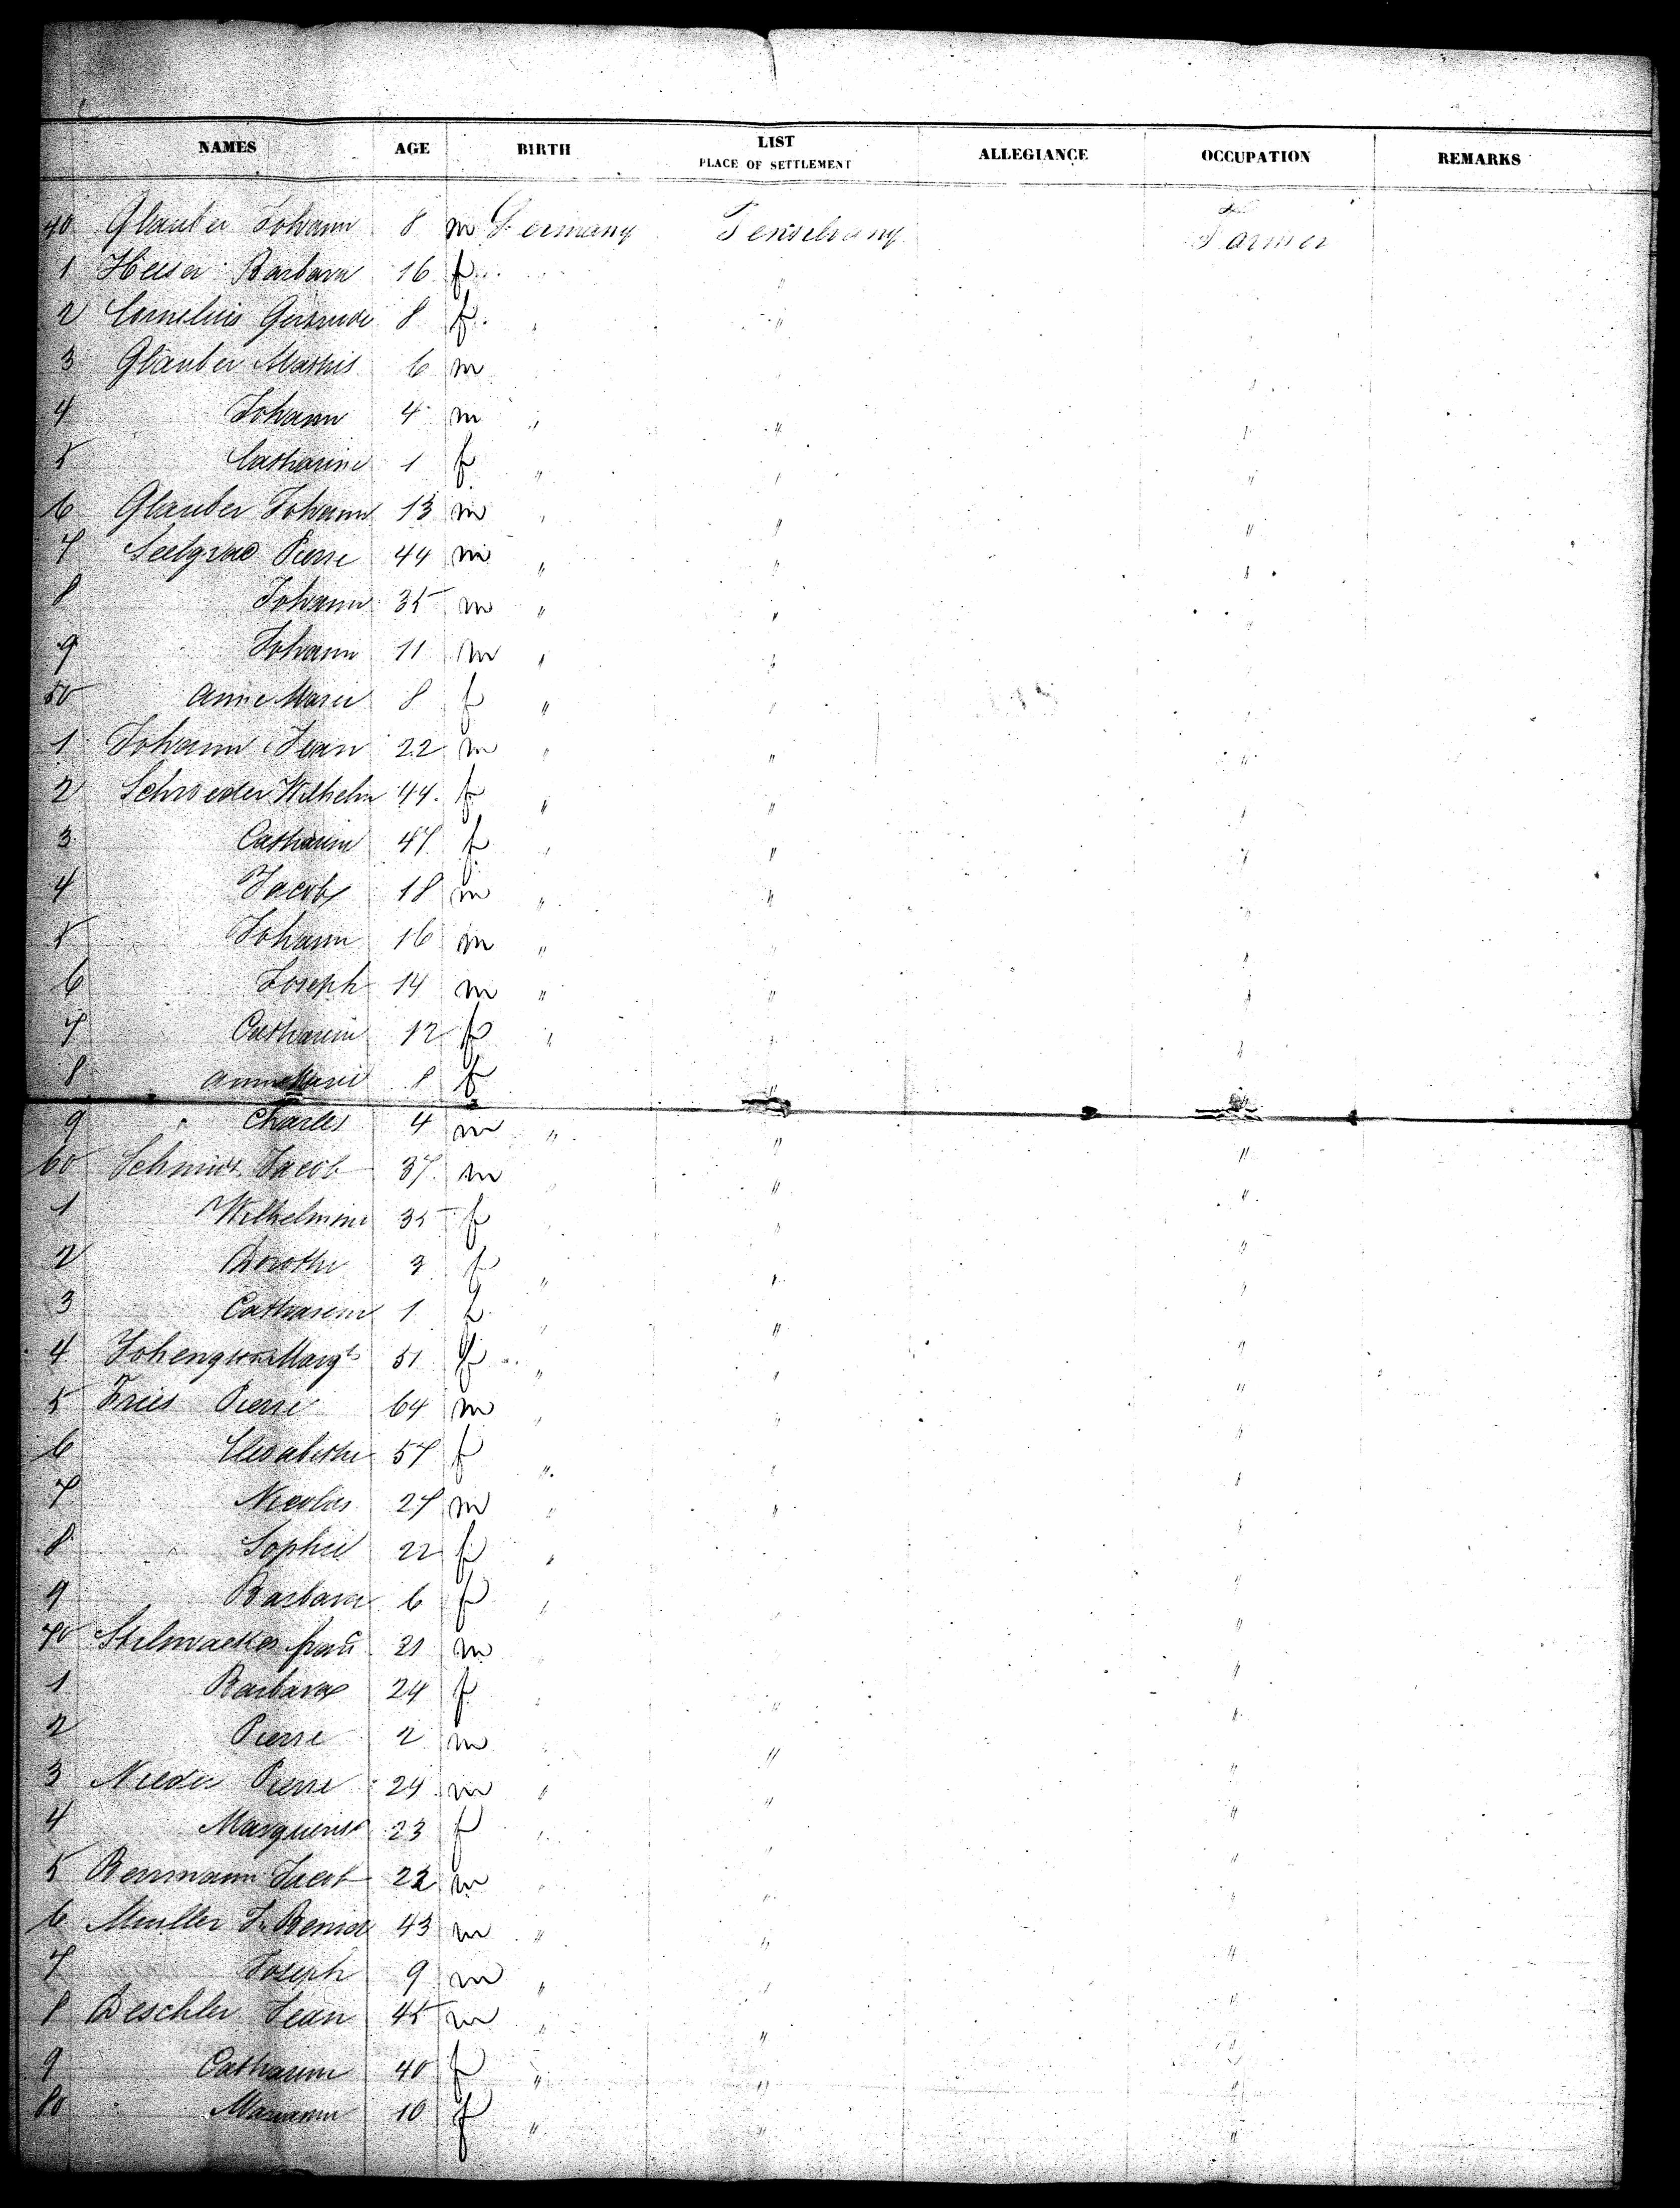 NAMES AGE BIRTH LIST PLACE OF SETTLEMENT ALLEGIANCE OCCUPATION REMARKS
40 Glauber Johann 8 m Germany Pensilvany Farmer
1 Heiser Barbara 16 f "
2 Cornelius 8 f " "
3 Glauber Mathis 6 m
4 Johann 4 m " " "
5 Catharine 1 f " " "
6 Glauber Johann 13 m " " "
7 Pierre 44 m " " "
8 Johann 35 m " " "
9 Johann 11 m " " "
50 Anne Marie 8 f " " "
1 Johann Jean 22 m " " "
2 Schroeder Wilhelm 44 f " " "
3 Catharine 47 f " " "
4 Jacob 18 m " " "
5 Johann 16 m " " "
6 Joseph 14 m " " "
7 Catharine 12 f " " "
8 Anne Marie 8 f " "
9 Charles 4 m " " "
60 Schmidt Jacob 37 m " " "
1 Wilhelmine 35 f " " "
2 Dorothe 3 f " " "
3 Catharine 1 f " " "
4 Margt 51 f " " "
5 Fries Pierre 64 m " " "
6 Elisabethe 57 f " " "
7 Nicolas 27 m " " "
8 Sophie 22 f " "
9 Barbara 6 f " "
70 21 m "
1 Barbara 24 f " " "
2 Pierre 2 m " "
3 Pierre 24 m " " "
4 Marguerite 23 f " "
5 Jacob 22 m " "
6 Muller J. 43 m " " "
7 Joseph 9 m " " "
8 Deschler Jean 45 m " " "
9 Catharine 40 f " " "
80 Mariann 10 f " " "